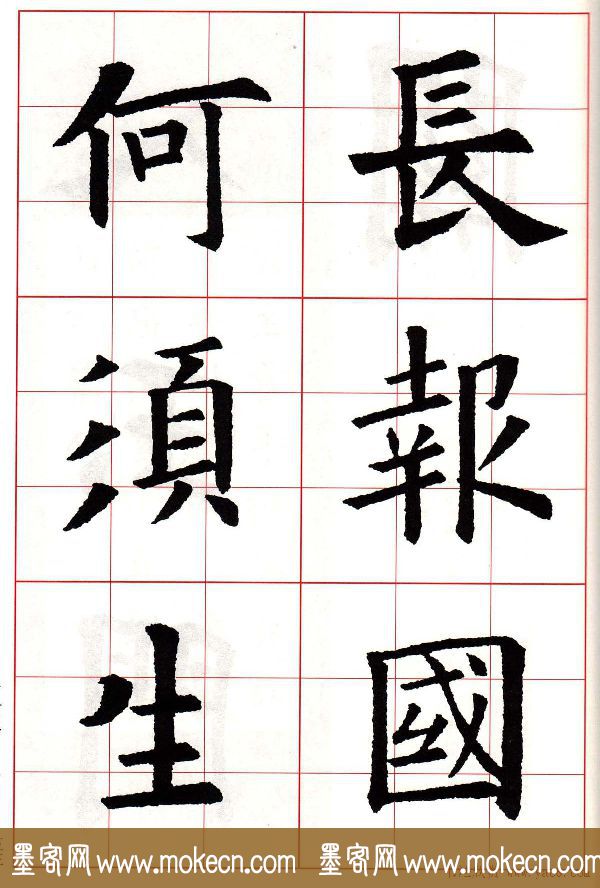 長報國
何須生
墨客网 www.mokecn.com 墨客网 www.mokecn.com